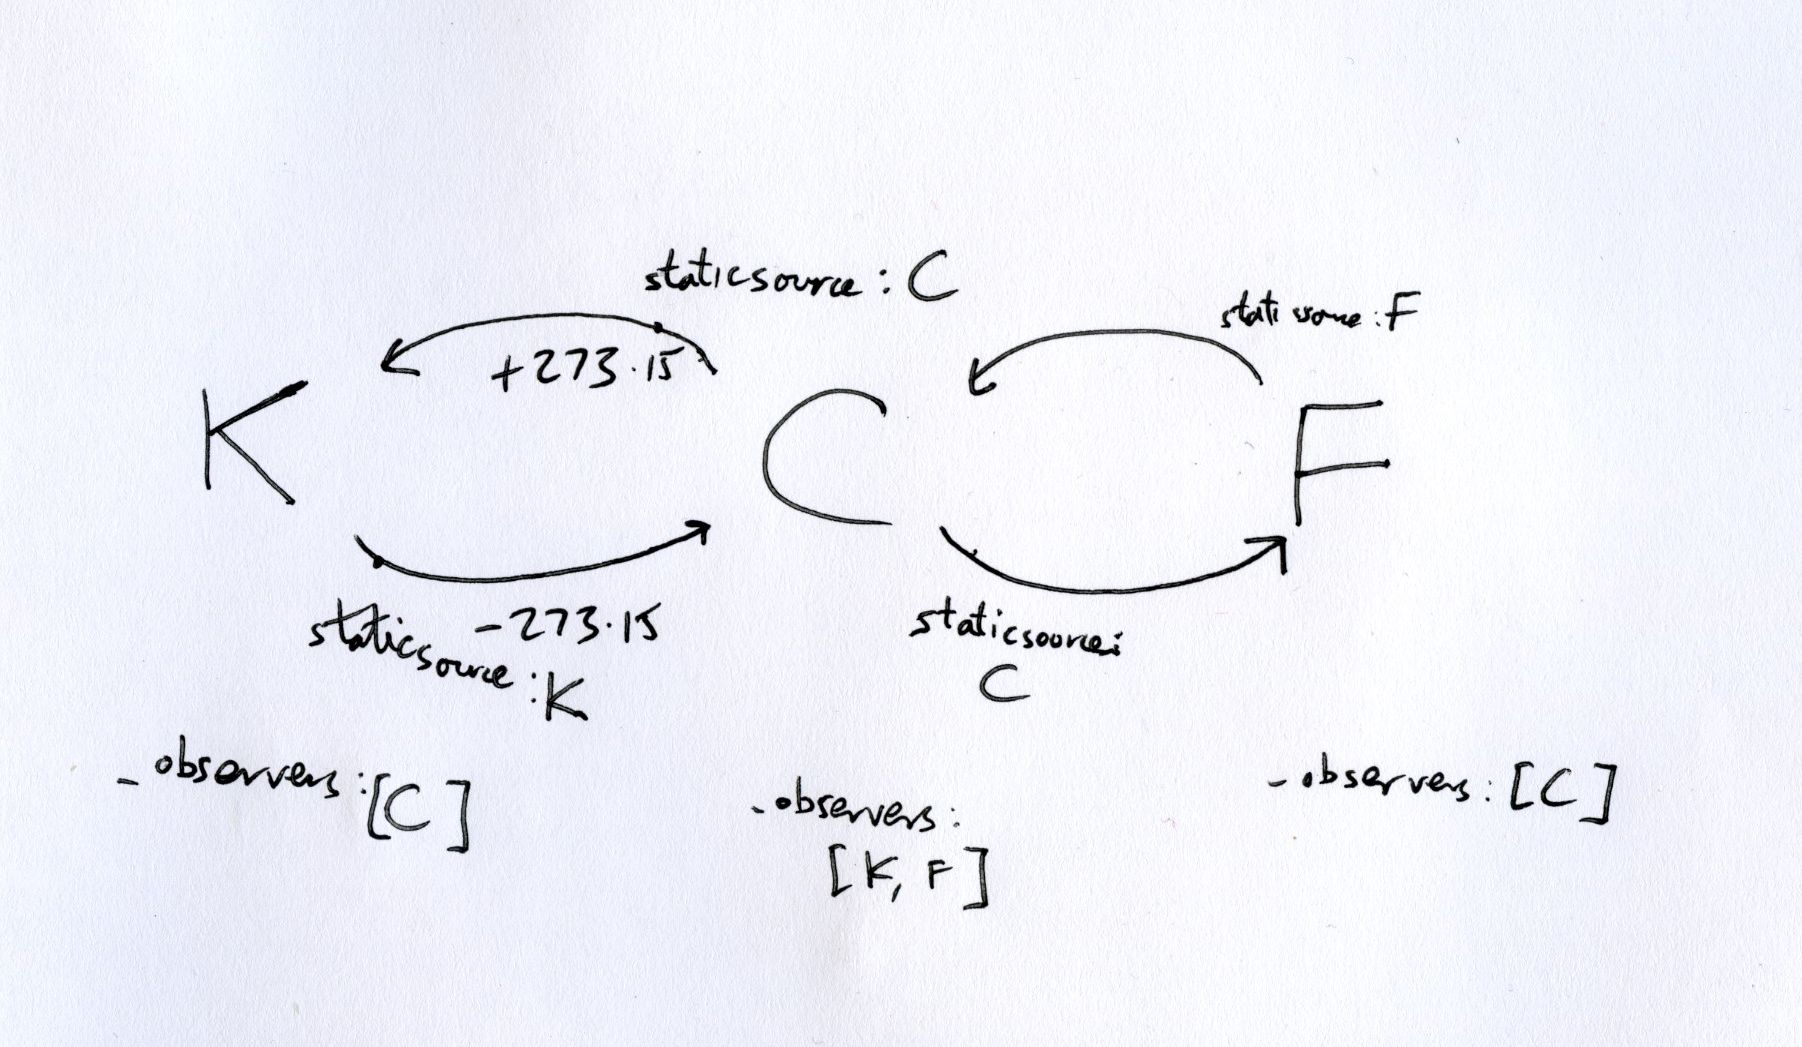 staticsource : C
staticsource : F
+273.15
K
C
F
-273.15
staticsource : K
staticsource:
C
_observers : [C]
_observers :
[K, F]
_observers : [C]